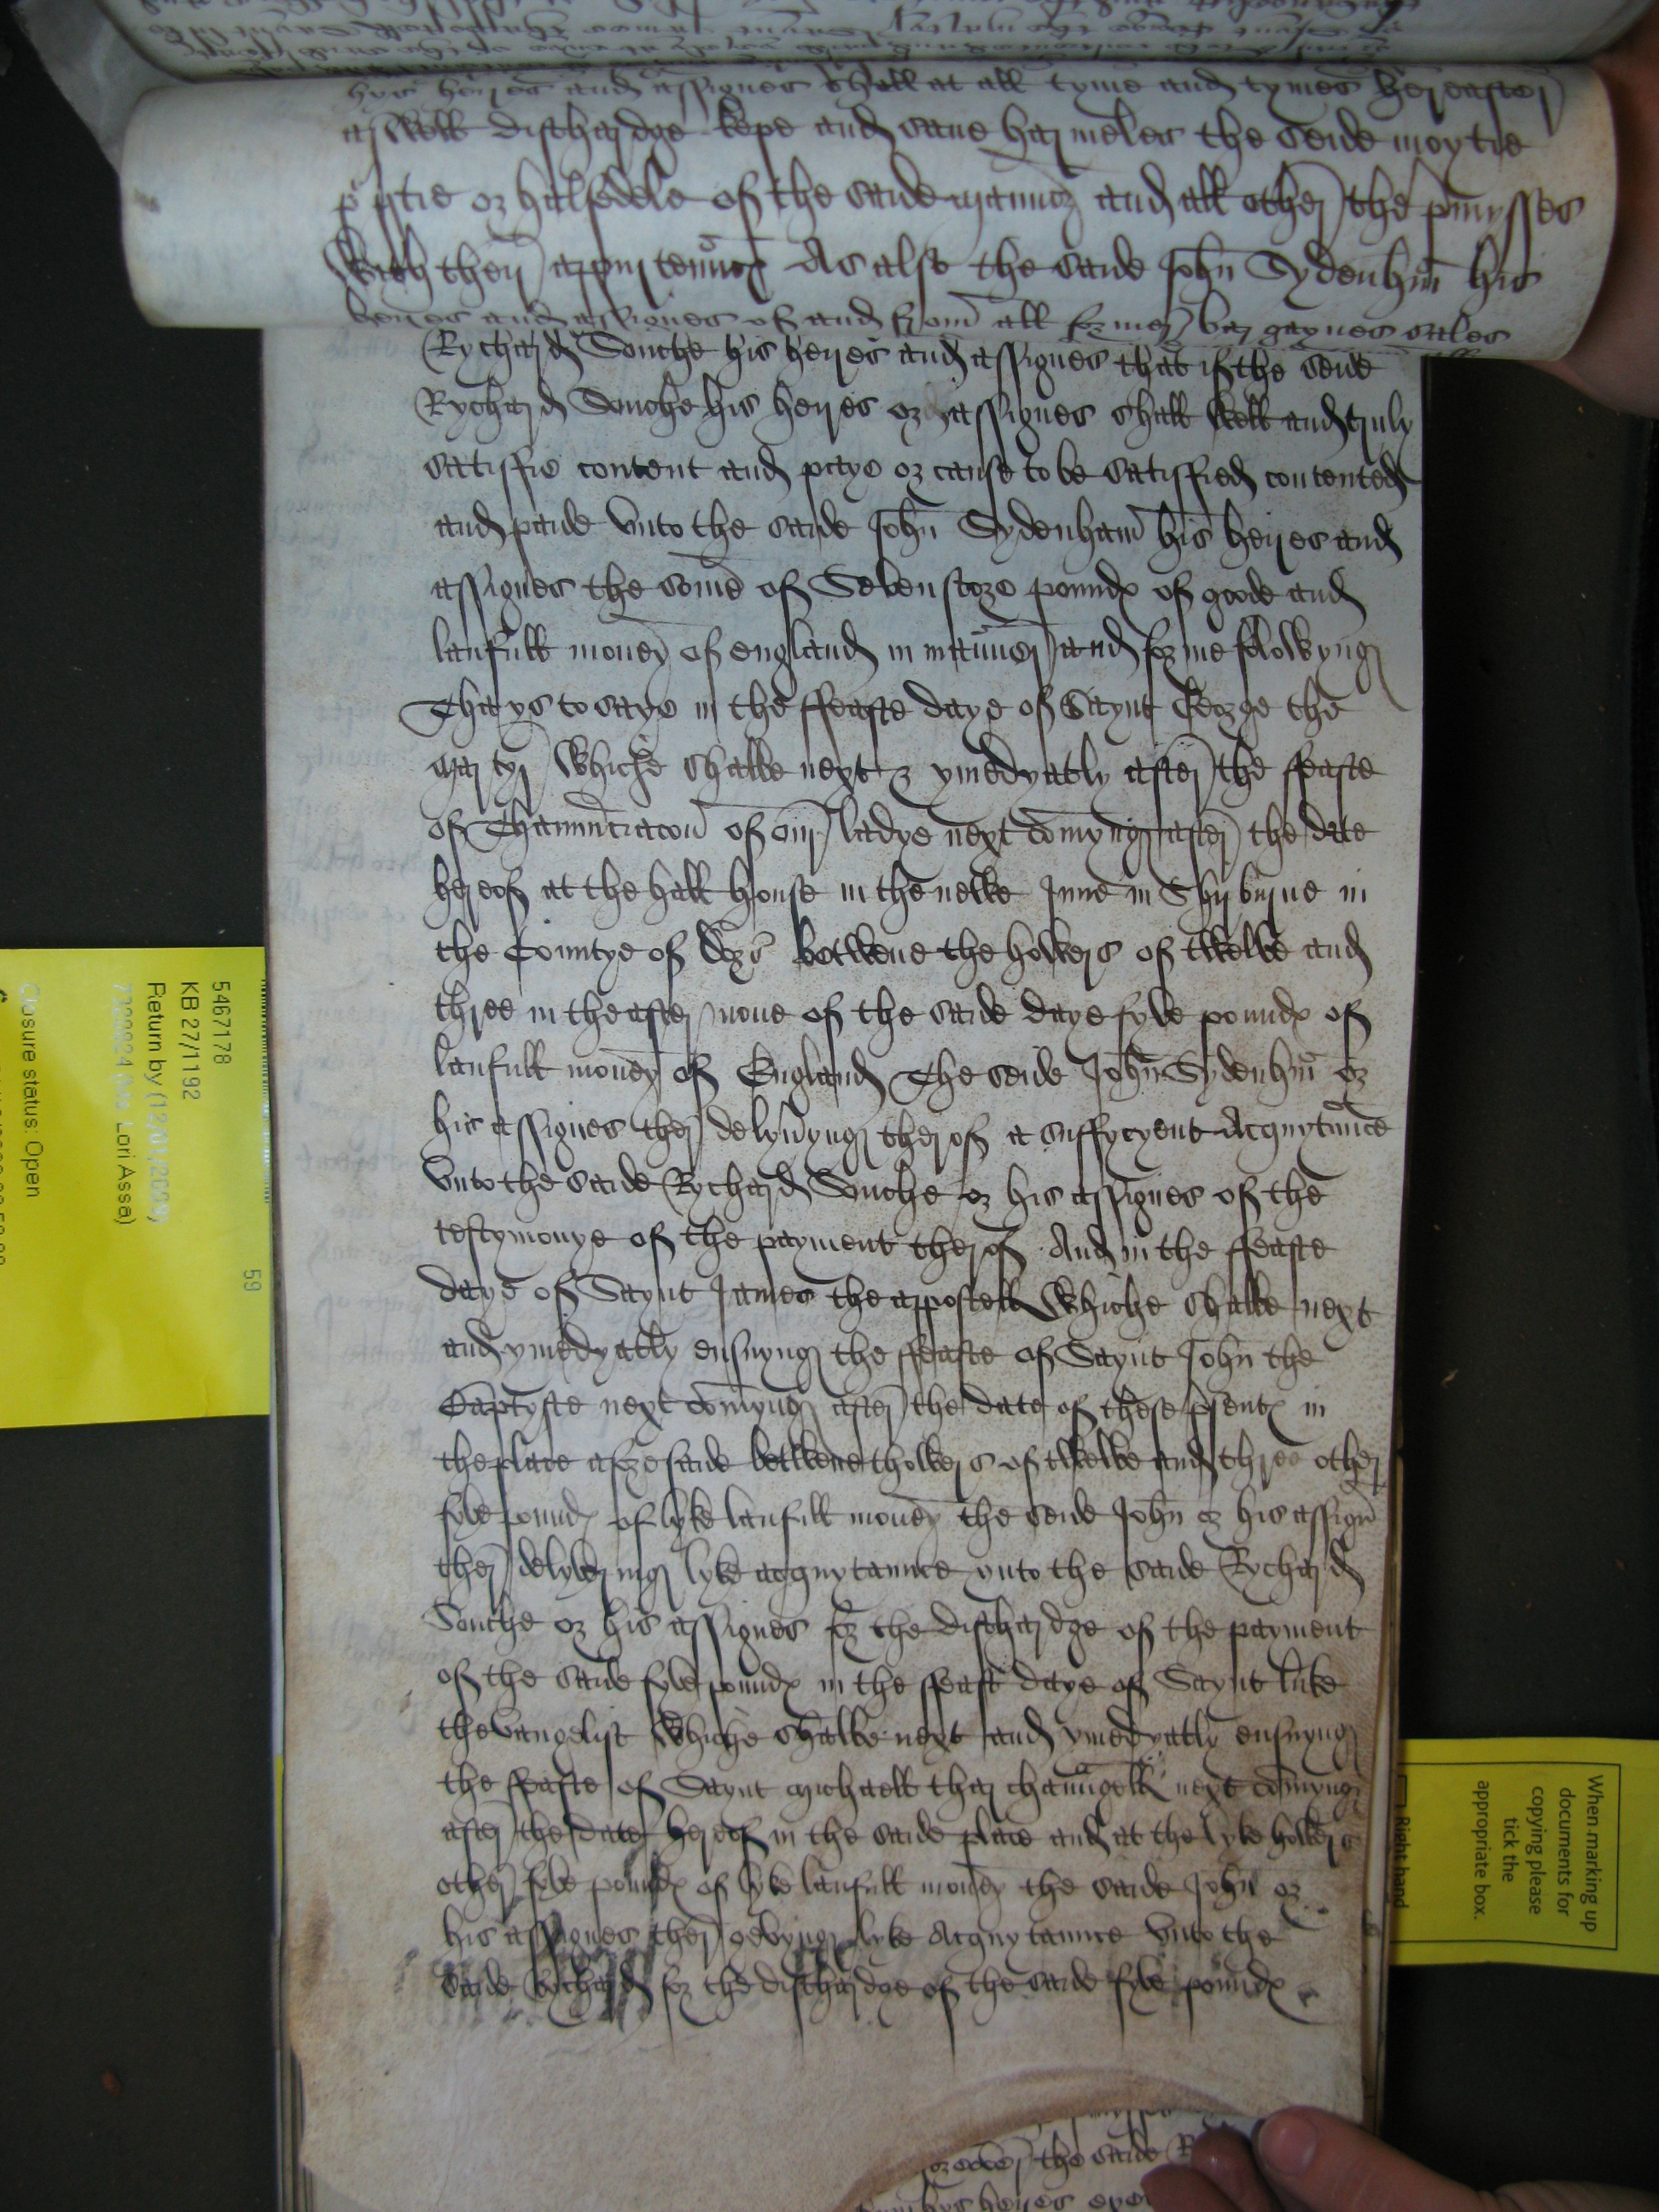 hys heyres and assignes shall at all tyme and tymes hereafter
aswell discharge kepe and save harmeles the seide moytie
or halfedele of the saide mannor and all other the pmysses
with ther appurtennces As also the saide John Sydenhm his
heires and assignes of and from all former bargaynes sales
Rychard Souche his heyres and assignes that if the seide
Rychard Souche his heyres or assignes shall well and truly
satisfie content and paye or cause to be satisfied contented
and paide unto the saide John Sydenham his heyres and
assignes the some of Seven score pounds of goode and
laufull money of england in manner and forme folowyng
Tha ys to saye in the ffeaste daye of Saynt George the
martyr whiche shalbe next & ymedyatly after the ffeaste
of Thannuciacon of our ladye next comyng after the date
hereof at the hall house in the newe Inne in Shyrburne in
the Countye of Dors betwene the howers of twelve and
three in the after none of the saide daye fyve pounds of
laufull money of England The seide John Sydenhm or
his assignes ther delyvyng therof a suffycyent Acquytance
unto the saide Rychard Souche or his assignes of the
testymonye of the payment therof And in the ffeaste
daye of Saynt James the appostell whiche shalbe next
and ymedyatly ensuyng the ffeaste of Saynt John the
Baptyste next comyng after the date of these psents in
the place aforesaide betwene thowers of twelve and three other
fyve pounds of lyke laufull money the seide John or his assign
ther delyvering lyke acquytaunce unto the saide Rychard
Souche or his assignes for the discharge of the payment
of the saide fyve pounds in the ffeast daye of Saynt luke
thevangelist whiche shalbe next and ymedyatly ensuyng
the ffeaste of Saynt Michaell tharchaungell next comyng
after the date hereof in the saide place and at the lyke howers
other fyve pounds of lyke laufull money the saide John or
his assignes ther gevyng lyke Acquytaunce unto the
saide Rychard for the discharge of the saide fyve pounds
the saide
hys heyres
5467178
KB 27/1192
Return by (12/01/2009)
Lori Assa)
59
Closure status: Open
When marking up
documents for
copying please
tick the
appropriate box.
Right hand